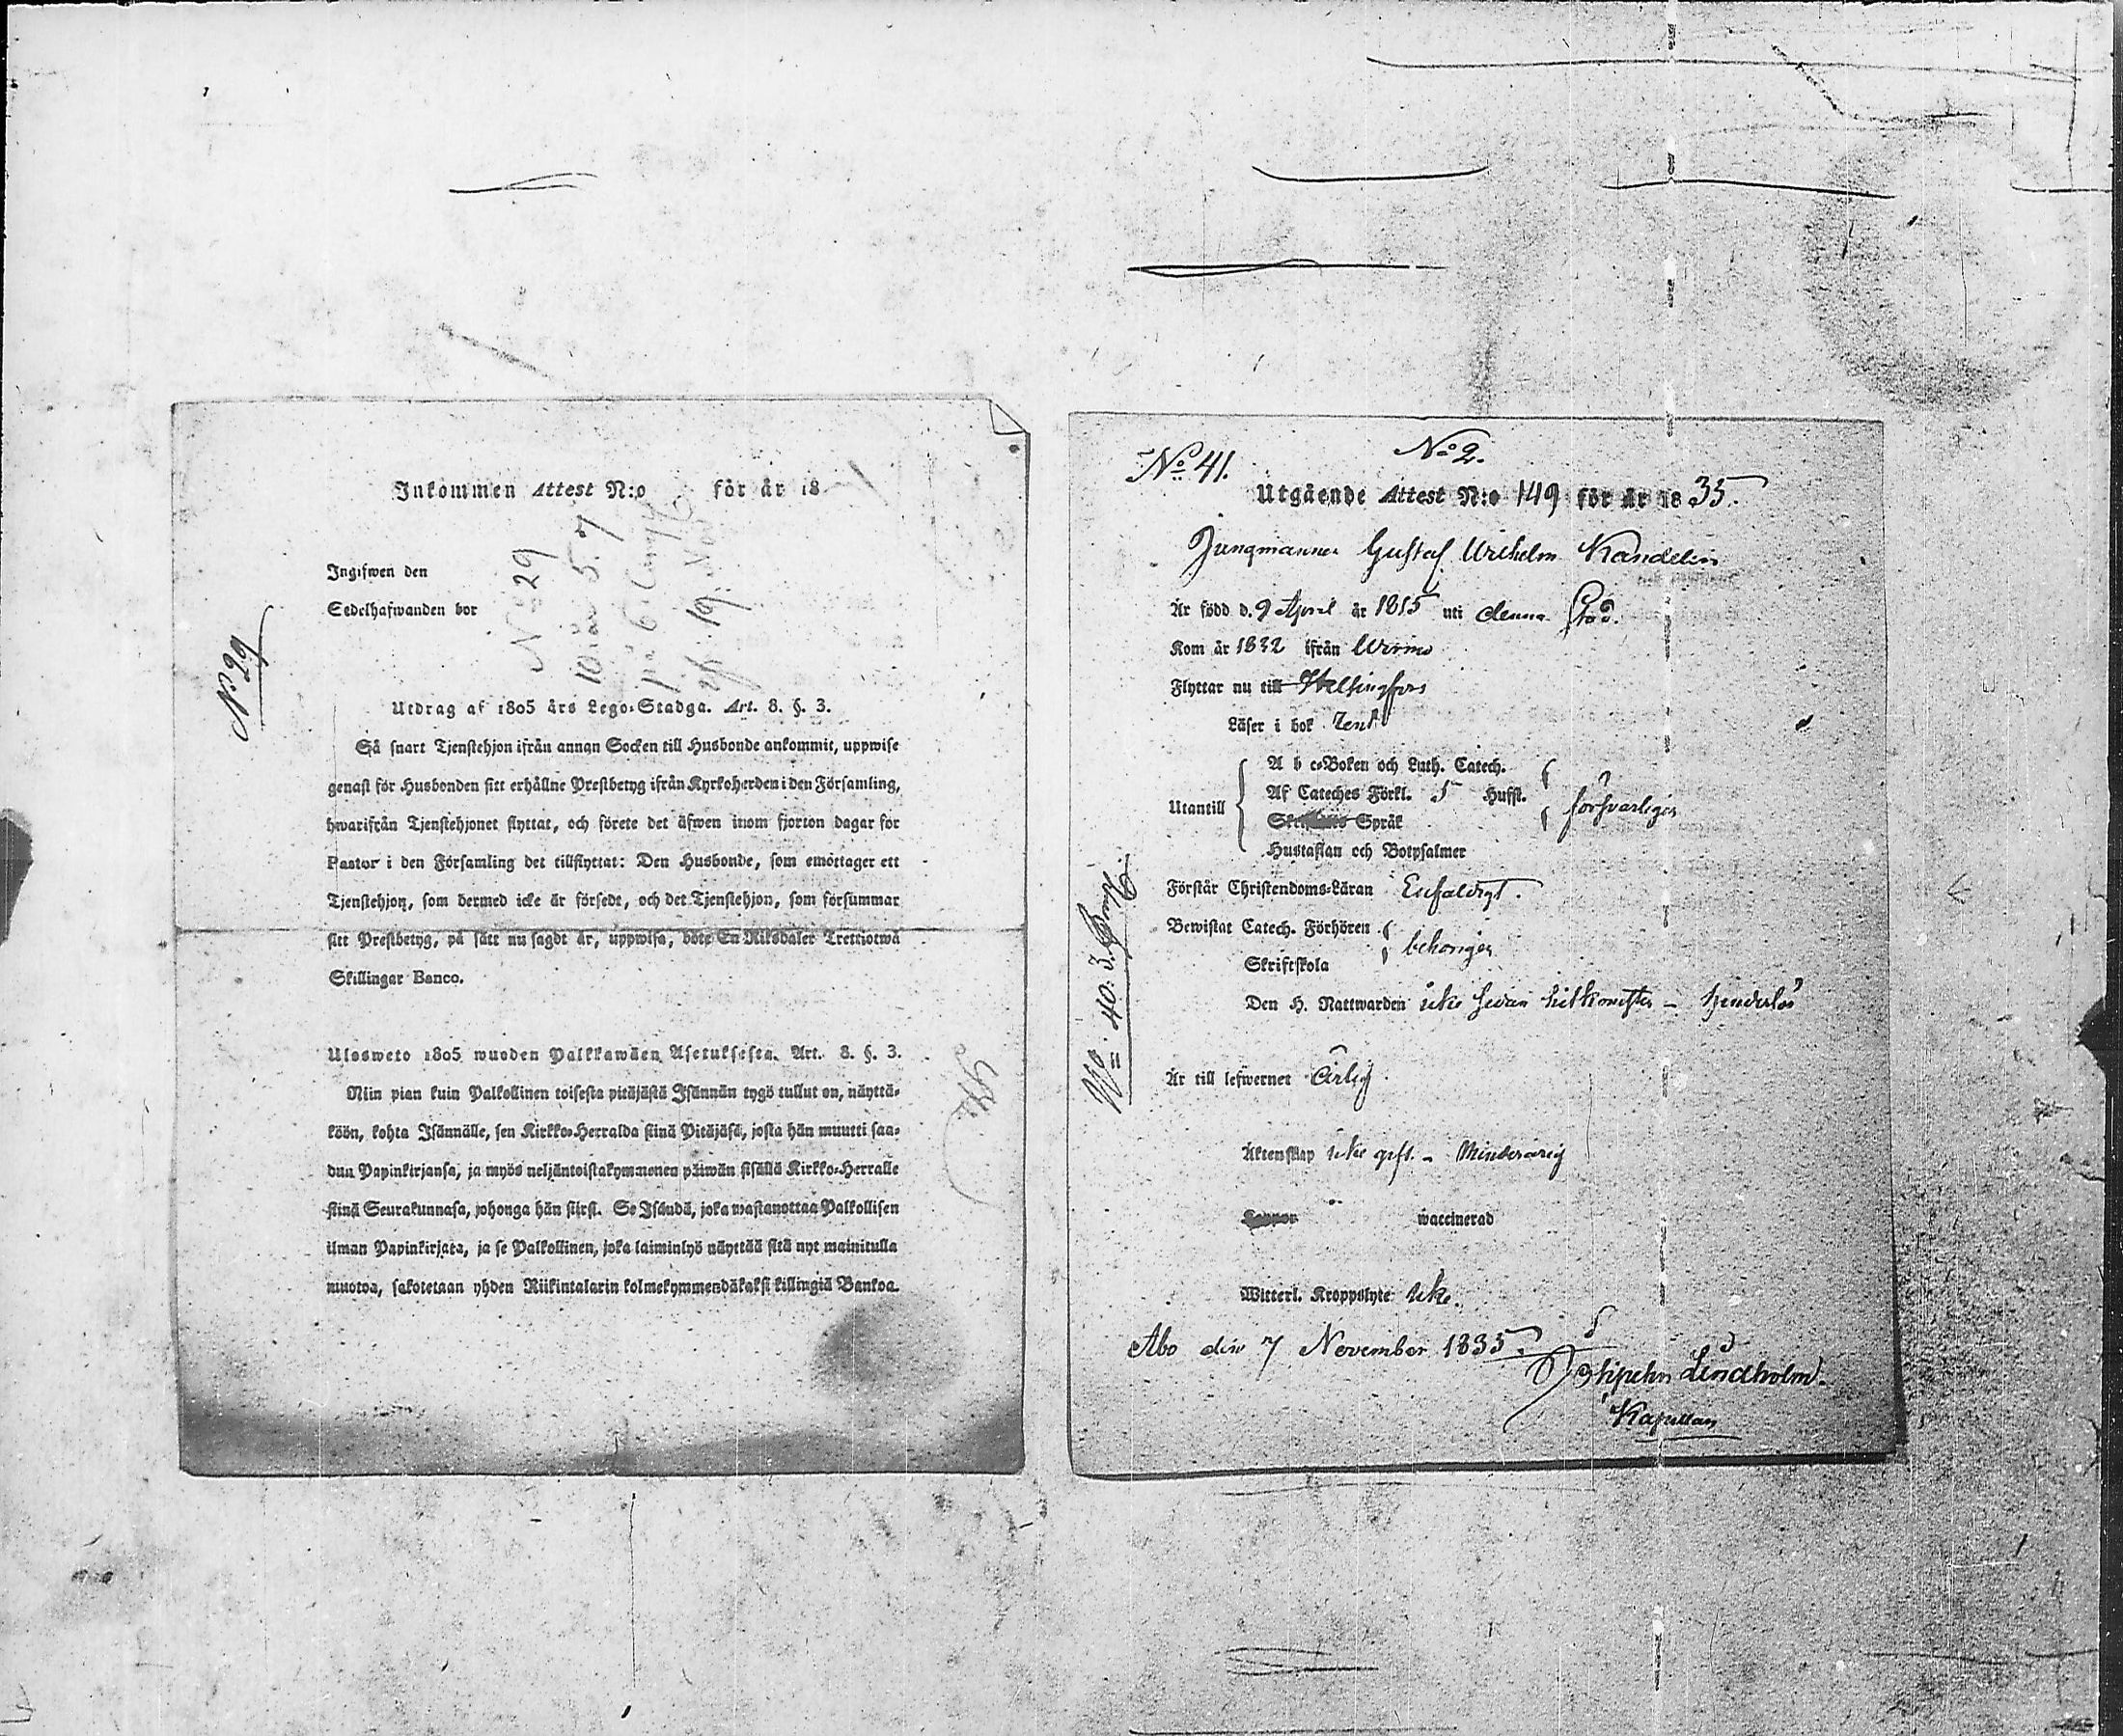 Inkommen Attest N:o för år 18
Ingifwen den
Sedelhafwanden bor
No 29
No 29
Utdrag af 1805 års Lego-Stadga. Art. 8. §. 3.
Så snart Tjenstehjon ifrån annan Socken till Husbonde ankommit, uppwise
genast för Husbonden sitt erhållne Prestbetyg ifrån Kyrkoherden i den Församling,
hwarifrån Tjenstehjonet flyttat, och förete det äfwen inom fjorton dagar för
Pastor i den Församling det tillflyttat: Den Husbonde, som emottager ett
Tjenstehjon, som dermed icke är försedt, och det Tjenstehjon, som försummar
sitt Prestbetyg, på sätt nu sagdt är, uppwisa, böte En Riksdaler Trettiotwå
Skillingar Banco.
Ulosweto 1805 wuoden Palkkawäen Asetuksesta. Art. 8. §. 3.
Niin pian kuin Palkollinen toisesta pitäjästä Isännän tygö tullut on, näyttä-
köön, kohta Isännälle, sen Kirkko-Herralda siinä Pitäjäsä, josta hän muutti saa-
dun Papinkirjansa, ja myös neljäntoistakymmenen päiwän sisällä Kirkko-Herralle
siinä Seurakunnasa, johonga hän siirsi. Se Isändä, joka wastanottaa Palkollisen
ilman Papinkirjata, ja se Palkollinen, joka laiminlyö näyttää sitä nyt mainitulla
muotoa, sakotetaan yhden Riikintalarin kolmekymmendäkaksi killingiä Bankoa.
No 41.
No 2.
Utgående Attest N:o 149 för år 1835.
Jungmannen Gustaf Wilhelm Kandelin
Är född d. 9 April år 1815 uti denna Stad.
Kom år 1832 ifrån Wirmo
Flyttar nu till Helsingfors
Läser i bok rent
Utantill
A b c-Boken och Luth. Catech.
Af Cateches Förkl. 5 Hufst.
Språk
Hustaflan och Botpsalmer
försvarligen
Förstår Christendoms-Läran Enfaldigt.
Bewistat Catech. Förhören
Skriftskola
behörigen
Den H. Nattwarden icke sedan hitkomsten - hinderlös
Är till lefwernet ärlig
Äktenskap icke gift. - Minderårig
waccinerad
Witterl. Kroppslyte icke.
Åbo den 7 November 1835.
Lindholm.
Kapellan